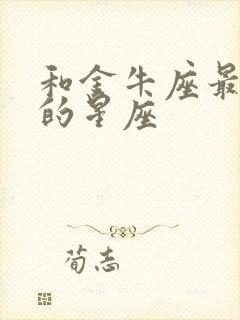 和金牛座最
的星座
荀志